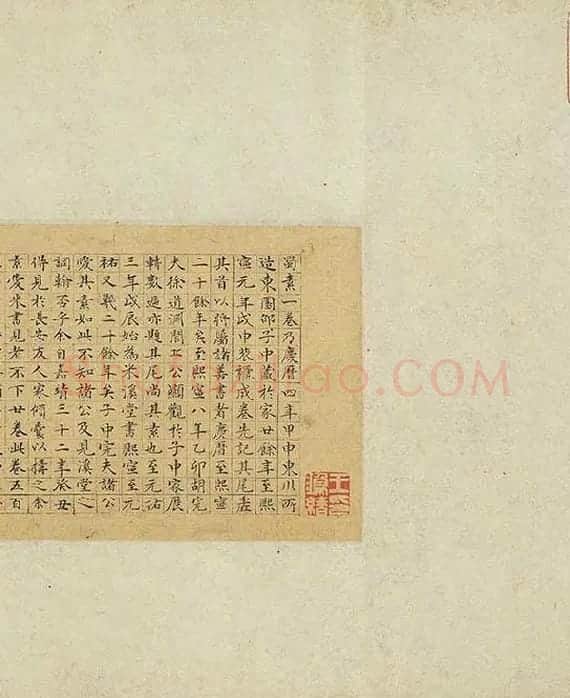 蜀素一卷乃慶曆四年甲申東川所
造東園邵子中藏於家廿餘年至熙
寧元年戊申裝褫成卷先記其尾虛
其首以將屬諸善書者慶曆至熙寧
二十餘年矣至熙寧八年乙卯胡完
夫徐道淵閭丘公顯觀於子中家展
轉數過亦題其尾尚其素也至元祐
三年戊辰始為米溪堂書熙寧至元
祐又幾二十餘年矣子中完夫諸公
愛其素如此不知諸公及見溪堂之
詞翰否乎余自嘉靖三十二年癸丑
得見於長安友人何以之余
素愛米書見者不下廿卷此卷五百
.COM